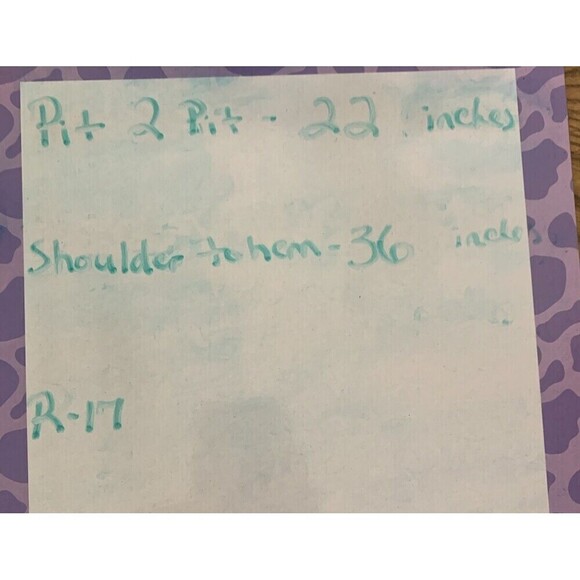 Pit 2 Pit - 22 inches
Shoulder to hem - 36 inches
R-17